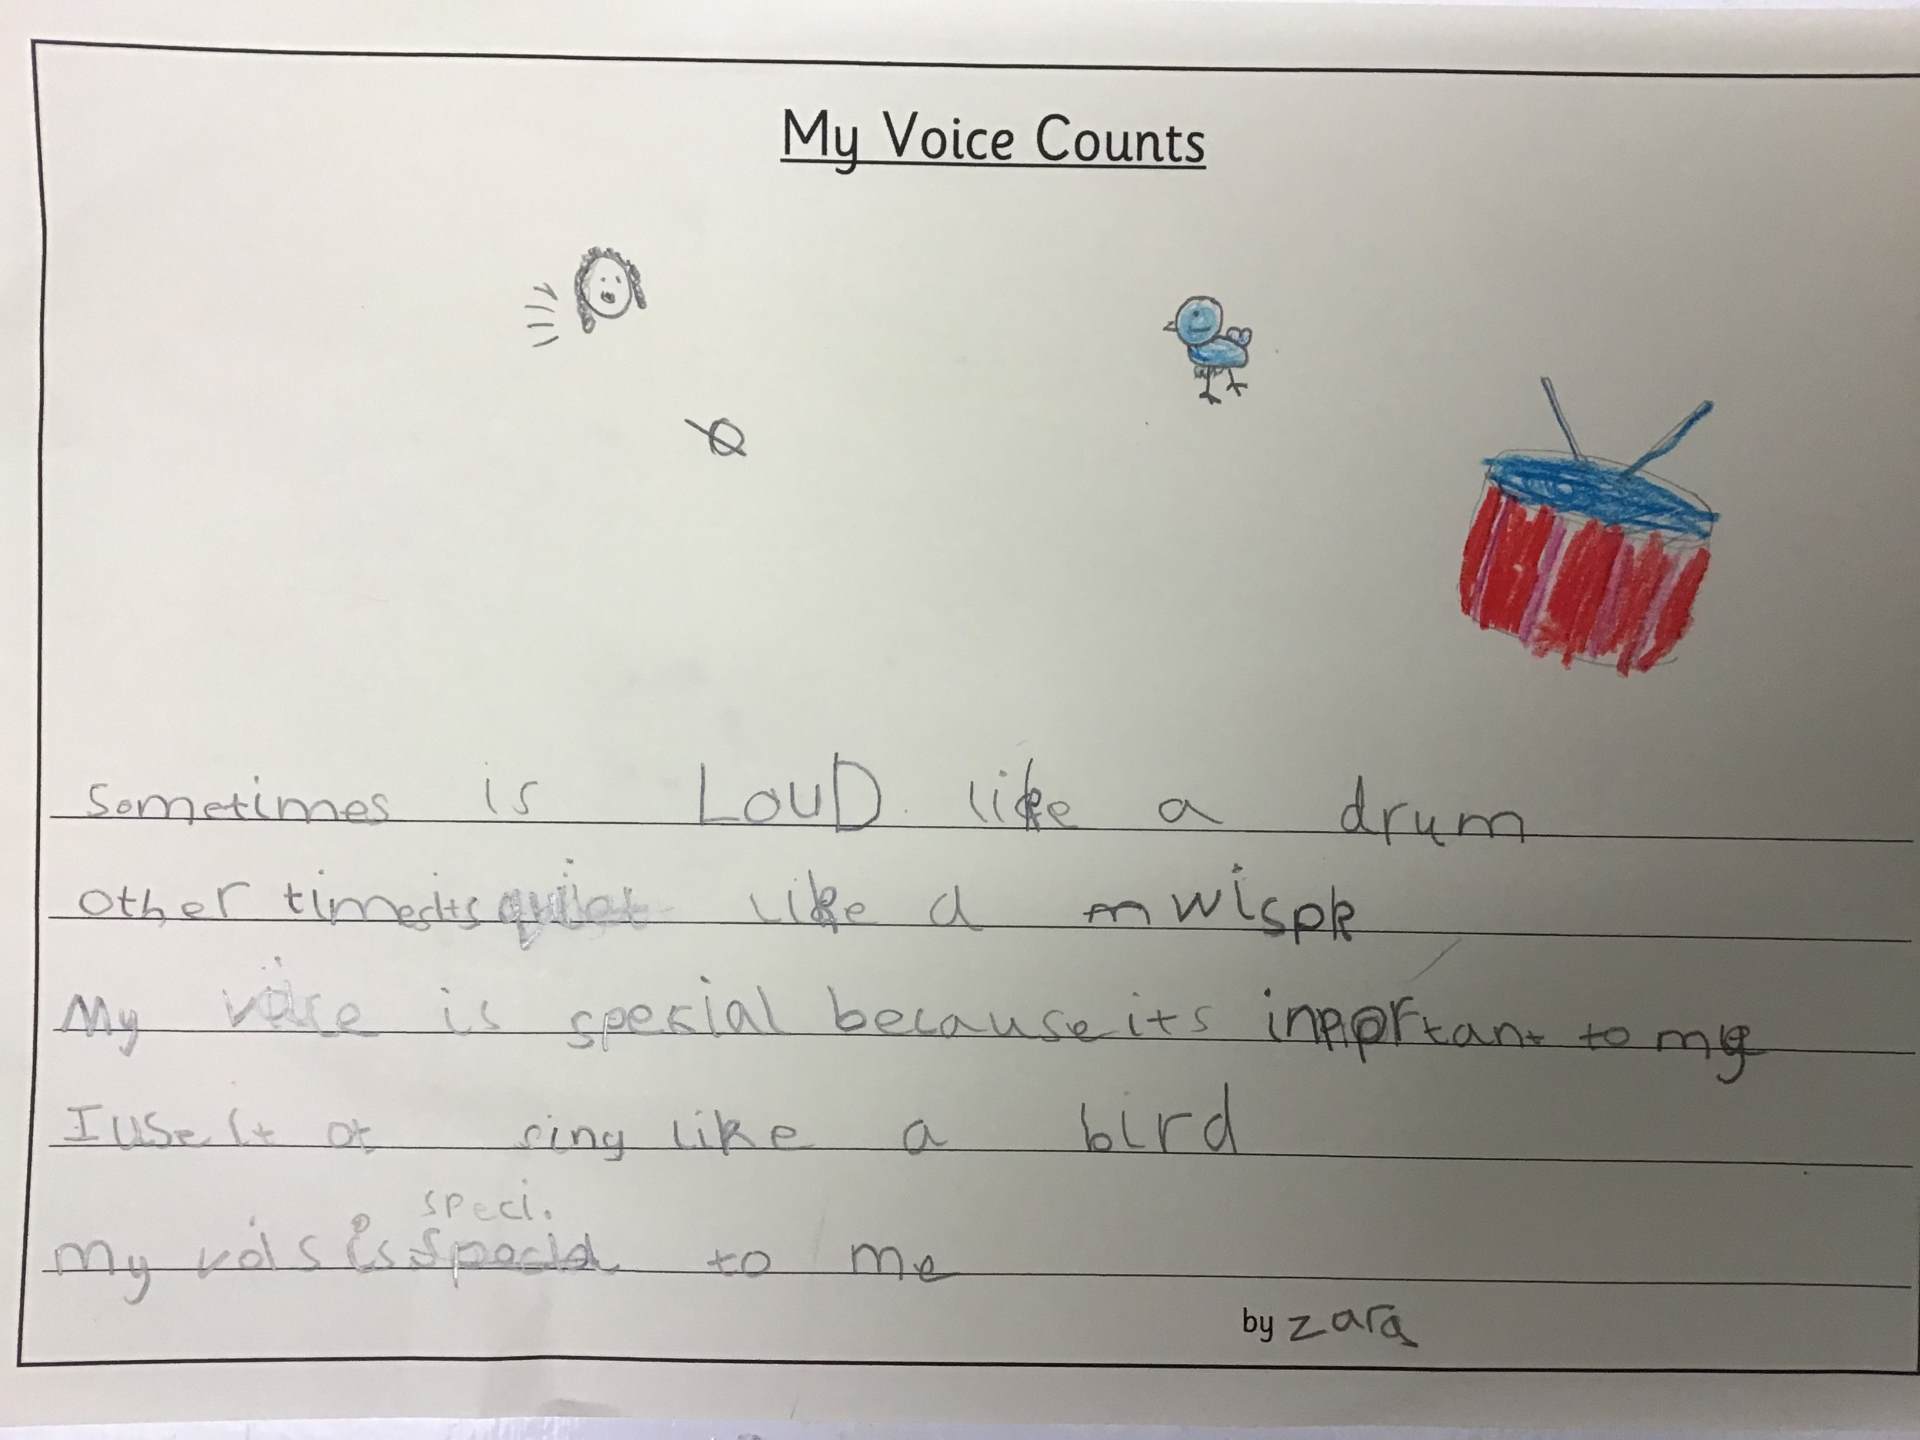 My Voice Counts
sometimes is LouD like a drum
other timedits quiet like a m wispk
My voise is spesial because its inportant to my
I use it ot sing like a bird
speci.
My vois is special to me
by zara